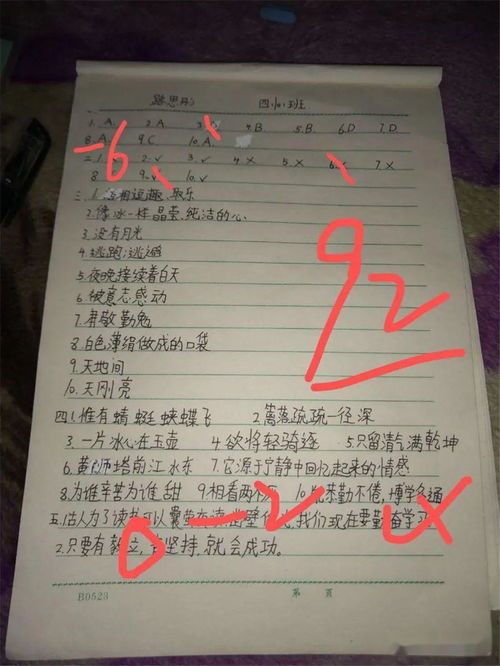 路思彤 四.(1)班
1. A. 2. A 4. B. 5. B 6. D 7. D
8. A. 9. C 10. A.
-6
二. 1. x 2. √ 3. √ 4. x 5. x 7. x
8 9. √ 10. √
三. 1. 互相逗趣、取乐
2. 像冰一样晶莹、纯洁的心.
3. 没有月光
4. 逃跑;逃避
5. 夜晚接续着白天
6. 被意志感动
7. 勤勉
8. 白色薄绢做成的口袋
9. 天地间
10. 天刚亮
92
四 1. 惟有蜻蜓蛱蝶飞 2. 篱落疏疏一径深
3. 一片冰心在玉壶 4. 欲将轻骑逐 5. 只留清气满乾坤
6. 黄师塔前江水东 7. 它源于宁静中回忆起来的情感
8. 为谁辛苦为谁甜 9. 相看两不 10. 来勤不倦,博学多通
五. 1. 古人为了读书可以囊萤 我们现在要勤奋学
0 -2
2. 只要有毅 坚持,就会成功。
B0523 第 页